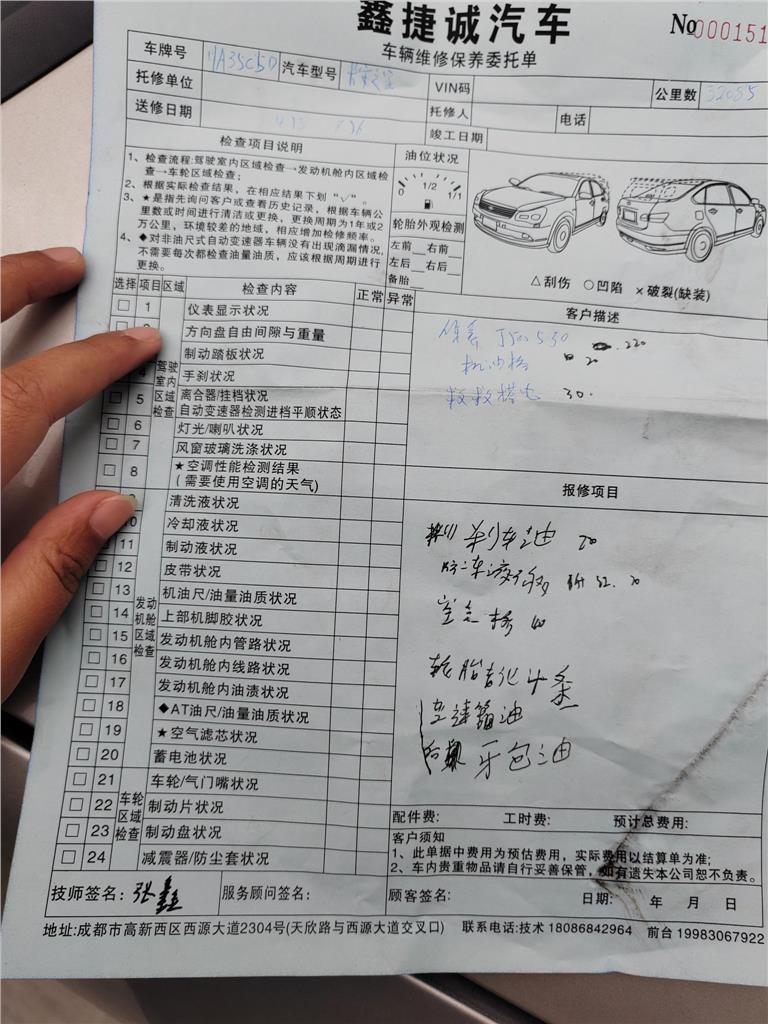 鑫捷诚汽车
No 000151
车辆维修保养委托单
车牌号 汽车型号 VIN码 公里数 32085
托修单位 托修人 电话
送修日期 竣工日期
检查项目说明
1、检查流程:驾驶室内区域检查→发动机舱内区域检
查→车轮区域检查;
2、根据实际检查结果，在相应结果下划“√”。
3、★是指先询问客户或查看历史记录，根据车辆公
里数或时间进行清洁或更换，更换周期为1年或2
万公里，环境较差的地域，相应增加检修频率。
4、◆对非油尺式自动变速器车辆没有出现滴漏情况,
不需要每次都检查油量油质，应该根据周期进行
更换。
油位状况
0 1/2 1/1
轮胎外观检测
左前 右前
左后 右后
备胎
△刮伤 ○凹陷 ×破裂(缺装)
选择 项目 区域 检查内容 正常 异常
驾驶室内区域检查
1 仪表显示状况
方向盘自由间隙与重量
制动踏板状况
4 手刹状况
5 离合器/挂档状况
自动变速器检测进档平顺状态
6 灯光/喇叭状况
7 风窗玻璃洗涤状况
8 ★空调性能检测结果
(需要使用空调的天气)
发动机舱区域检查
清洗液状况
冷却液状况
11 制动液状况
12 皮带状况
13 机油尺/油量油质状况
14 上部机脚胶状况
15 发动机舱内管路状况
16 发动机舱内线路状况
17 发动机舱内油渍状况
18 ◆AT油尺/油量油质状况
19 ★空气滤芯状况
20 蓄电池状况
车轮区域检查
21 车轮/气门嘴状况
22 制动片状况
23 制动盘状况
24 减震器/防尘套状况
客户描述
保养 530 220
机油格 20
救救搭电 30.
报修项目
刹车油
空气格 40
轮胎老化4条
变速箱油
牙包油
配件费: 工时费: 预计总费用:
客户须知
1、此单据中费用为预估费用，实际费用以结算单为准;
2、车内贵重物品请自行妥善保管，如有遗失本公司恕不负责。
技师签名: 张鑫 服务顾问签名: 顾客签名: 日期: 年 月 日
地址:成都市高新西区西源大道2304号(天欣路与西源大道交叉口) 联系电话:技术 18086842964 前台 19983067922